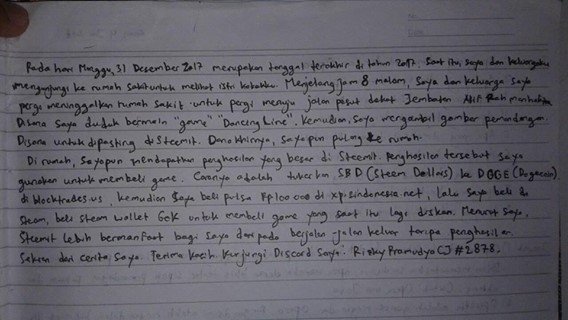 Pada hari Minggu, 31 Desember 2017 merupakan tanggal terakhir di tahun 2017. Saat itu, saya dan keluargaku
mengunjungi ke rumah sakit untuk melihat istri kakakku. Menjelang jam 8 malam, saya dan keluarga saya
pergi meninggalkan rumah sakit untuk pergi menuju jalan pusat dekat Jembatan Alif Rahmanhakim
Disana saya duduk bermain "game" "Dancing Line". Kemudian, saya mengambil gambar pemandangan
Disana untuk diposting di Steemit. Dan akhirnya, saya pun pulang ke rumah.
Di rumah, saya pun mendapatkan penghasilan yang besar di Steemit. Penghasilan tersebut saya
gunakan untuk membeli game. Caranya adalah tukarkan SBD (Steem Dollars) ke DOGE (Dogecoin)
di blocktrades.us kemudian saya beli pulsa Rp100 000 di xpisindonesia.net, lalu saya beli di
Steam, beli steam wallet 60k untuk membeli game yang saat itu lagi diskon. Menurut saya,
Steemit lebih bermanfaat bagi saya daripada berjalan-jalan keluar tanpa penghasilan.
Sekian dari cerita saya. Terima kasih. Kunjungi Discord Saya: RizkyPramudyaCJ #2878.